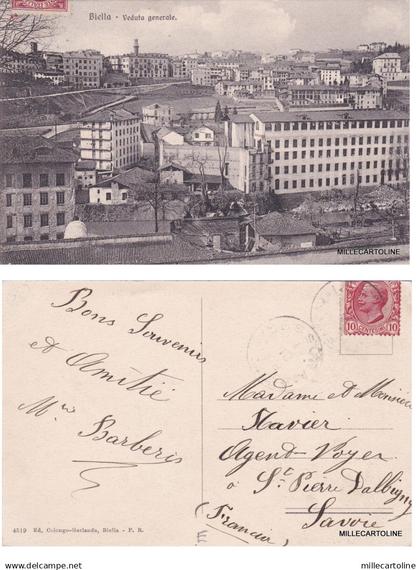 Biella - Veduta generale.
MILLECARTOLINE
Bons Souvenirs
et Amitié
Mrs Barberis
10 10
Madame et Monsieur
Xavier
Agent-Voyer
à St Pierre d'Albigny
Savoie
(Francia)
4519 Ed. - Biella - P. R.
MILLECARTOLINE
millecartoline